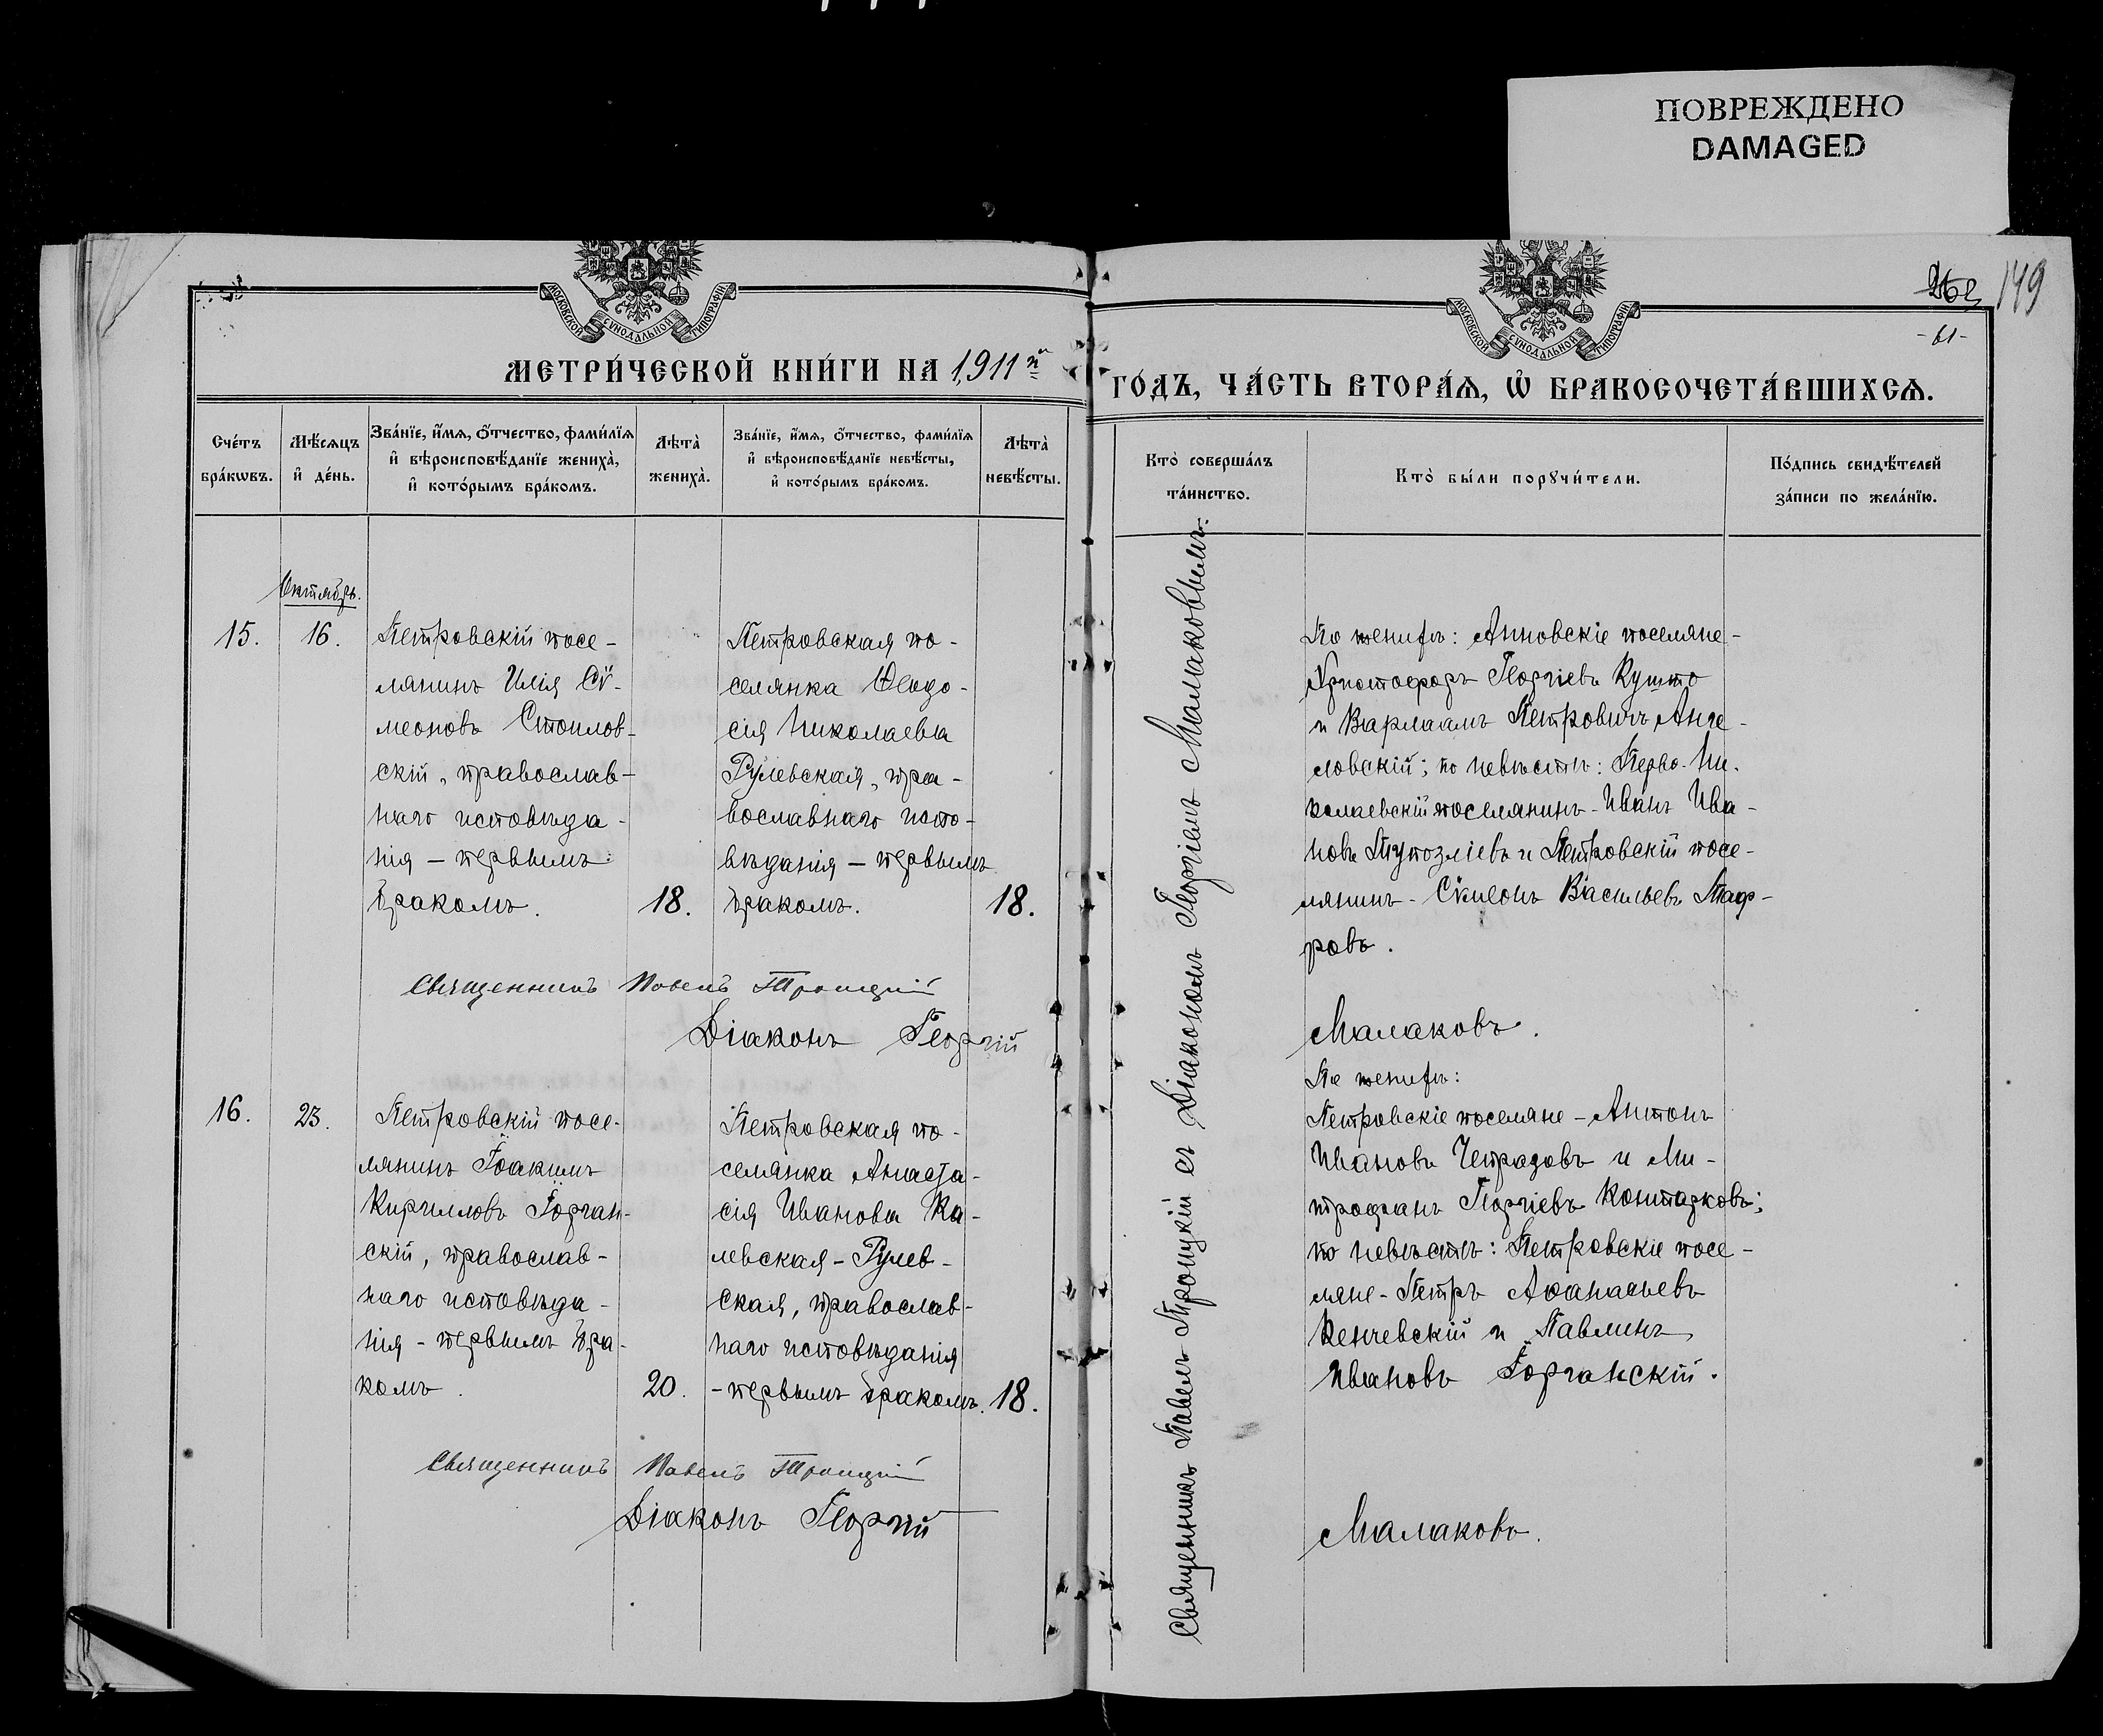 ПОВРЕЖДЕНО
DAMAGED
149
-61-
МОСКОВСКОЙ СУНОДАЛЬНОЙ ТИПОГРАФІИ
МОСКОВСКОЙ СУНОДАЛЬНОЙ ТИПОГРАФІИ
МЕТРИ́ЧЕСКОЙ КНИ́ГИ НА 1911й
ГО́ДЪ, ЧА́СТЬ ВТОРА́Ѧ, Ѽ БРАКОСОЧЕТА́ВШИХСѦ.
Сче́тъ бра́кѡвъ.
Мѣ́сѧцъ и҆ де́нь.
Зва́нїе, и҆́мѧ, ѻ҆́тчество, фами́лїѧ и҆ вѣроисповѣ́данїе жениха̀, и҆ кото́рымъ бра́комъ.
Лѣта̀ жениха̀.
Зва́нїе, и҆́мѧ, ѻ҆́тчество, фами́лїѧ и҆ вѣроисповѣ́данїе невѣ́сты, и҆ кото́рымъ бра́комъ.
Лѣта̀ невѣ́сты.
Кто̀ соверша́лъ та́инство.
Кто̀ бы́ли порꙋчи́тели.
По́дпись свидѣ́телей за́писи по жела́нїю.
Октябрь.
15.
16.
Петровскій посе-
лянинъ Илія Сѵ-
меоновъ Стоилов-
скій, православ-
наго исповѣда-
нія – первымъ
бракомъ.
18.
Петровская по-
селянка Ѳеодо-
сія Николаева
Рулевская, пра-
вославнаго испо-
вѣданія – первымъ
бракомъ.
18.
По женихѣ: Анновскіе поселяне-
Христофоръ Георгіевъ Кушто
и Варлаамъ Петровичъ Анге-
ловскій; по невѣстѣ: Перво-Ни-
колаевскій поселянинъ-Иванъ Ива-
новъ Тупозліевъ и Петровскій посе-
лянинъ-Сѵмеонъ Васильевъ Таф-
ровъ.
Священникъ Павелъ Троицкій
Діаконъ Георгій Малаковъ.
16.
23.
Петровскій посе-
лянинъ Іоакимъ
Кирилловъ Іорган-
скій, православ-
наго исповѣда-
нія – первымъ бра-
комъ.
20.
Петровская по-
селянка Анаста-
сія Иванова Ка-
левская-Рулев-
ская, православ-
наго исповѣданія
– первымъ бракомъ.
18.
По женихѣ:
Петровскіе поселяне – Антонъ
Ивановъ Чепразовъ и Ми-
трофанъ Георгіевъ Контарковъ;
по невѣстѣ: Петровскіе посе-
ляне-Петръ Аѳанасьевъ
Кенчевскій и Павлинъ
Ивановъ Іорганскій.
Священникъ Павелъ Троицкій
Діаконъ Георгій Малаковъ.
Священникъ Павелъ Троицкій съ Діакономъ Георгіемъ Малаковымъ.